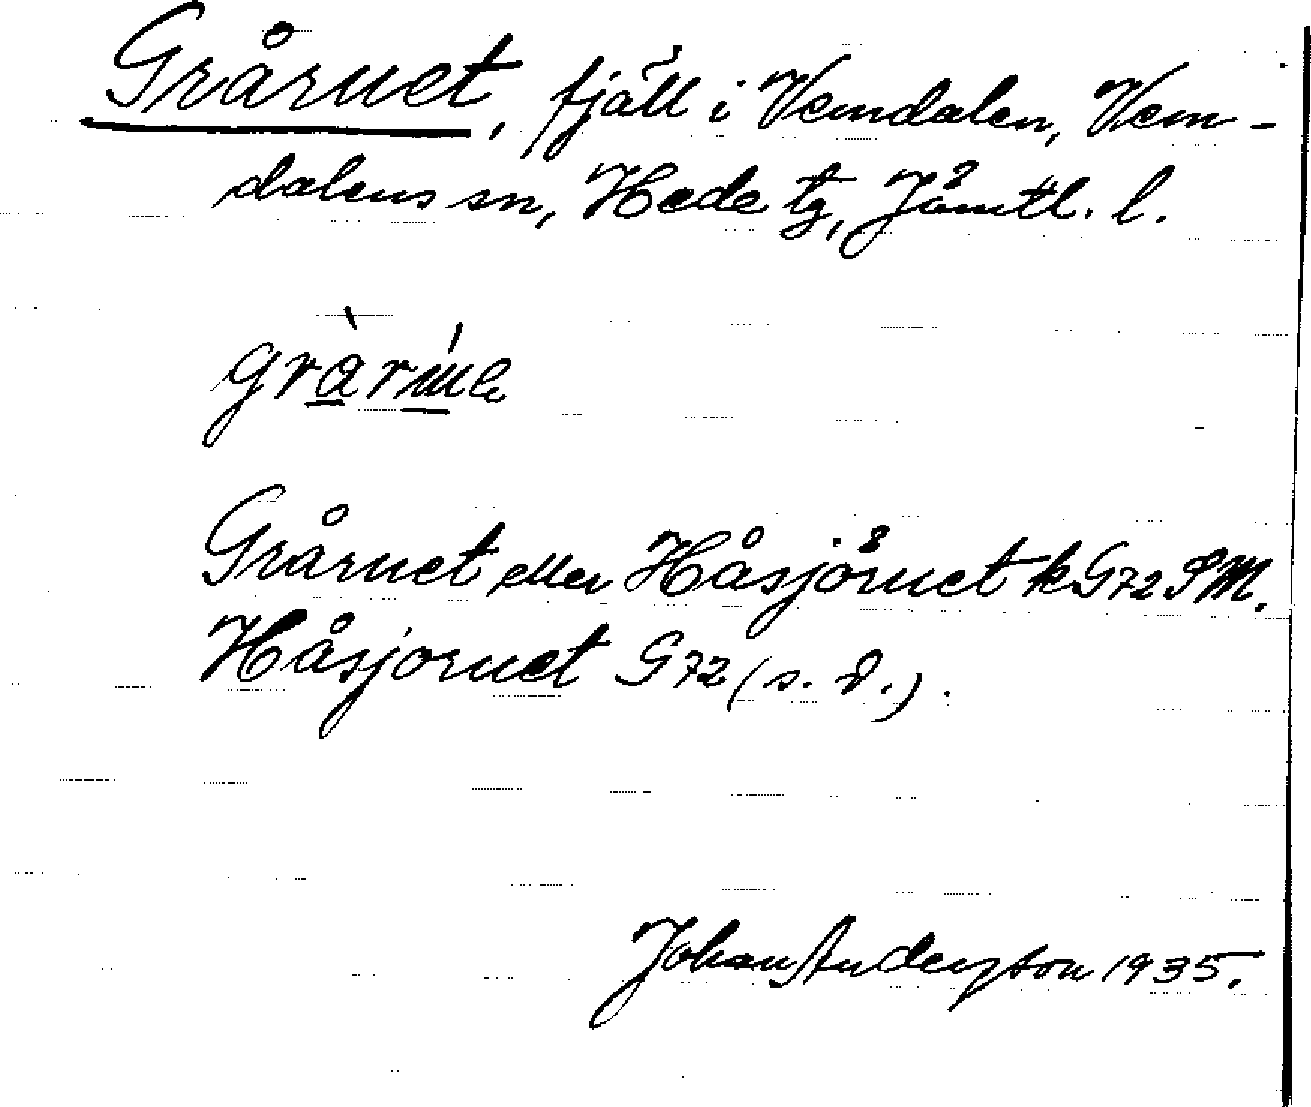 Gråruet, fjäll i Vemdalen, Vem-
dalens sn, Hede tg, Jämtl. l.
Gråruet eller Håsjöruet k G72 SM.
Håsjöruet G72 (s. d.).
Johan Anderson 1935.